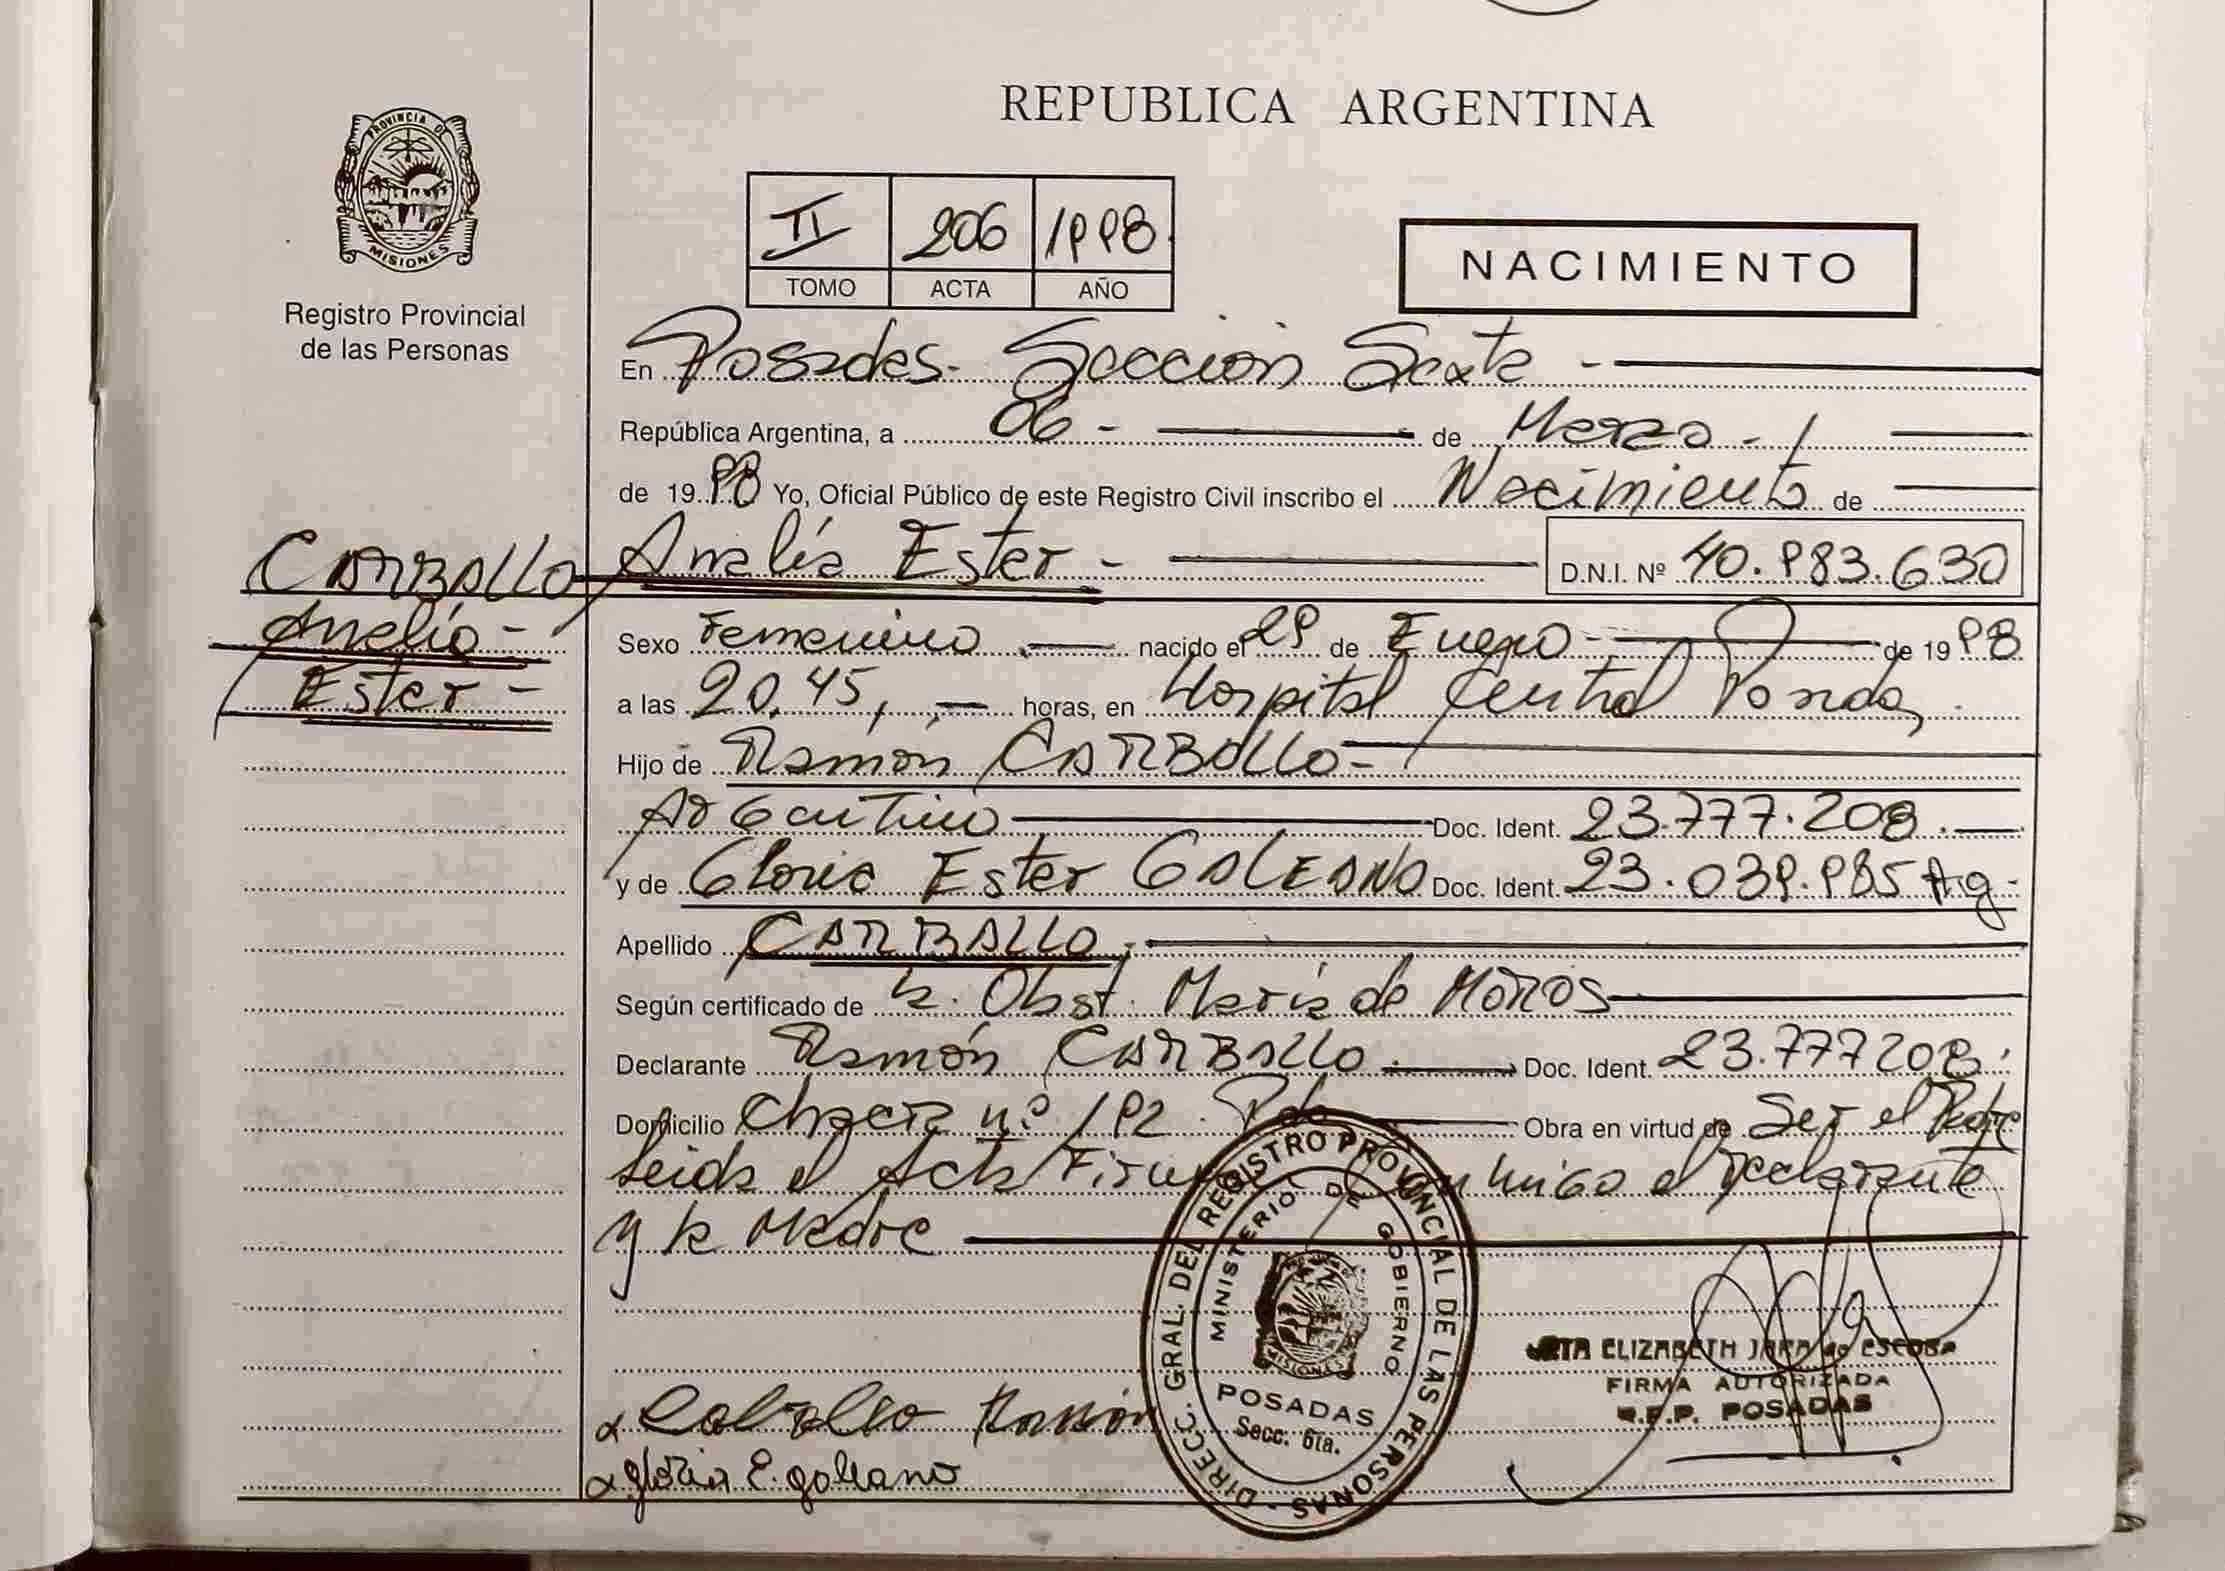 REPUBLICA ARGENTINA
PROVINCIA DE
MISIONES
Registro Provincial
de las Personas
II 206 1998
TOMO ACTA AÑO
NACIMIENTO
En Posadas - Sección Sexta -
República Argentina, a 06 - de Marzo -
de 1998 Yo, Oficial Público de este Registro Civil inscribo el Nacimiento de
CARBALLO Analía Ester - D.N.I. Nº 40.983.630
Analía -
Ester -
Sexo Femenino nacido el 29 de Enero - de 1998
a las 20,45, horas, en Hospital Central Posadas
Hijo de Ramón CARBALLO -
Argentino Doc. Ident. 23.777.208.
y de Gloria Ester GALEANO Doc. Ident. 23.039.985 Arg -
Apellido CARBALLO -
Según certificado de la Obst. María de MOROS
Declarante Ramón CARBALLO Doc. Ident. 23.777208
Domicilio Chacra nº 192 - Pdas Obra en virtud de Ser el Padre
Leída el Acta Firman conmigo el declarante
y la Madre
DIRECC. GRAL. DEL REGISTRO PROVINCIAL DE LAS PERSONAS -
MINISTERIO DE GOBIERNO
MISIONES
POSADAS
Secc. 6ta.
ELIZABETH JARA de ESCOBA
FIRMA AUTORIZADA
R.P.P. POSADAS
Carballo Ramón
gloria E. galeano